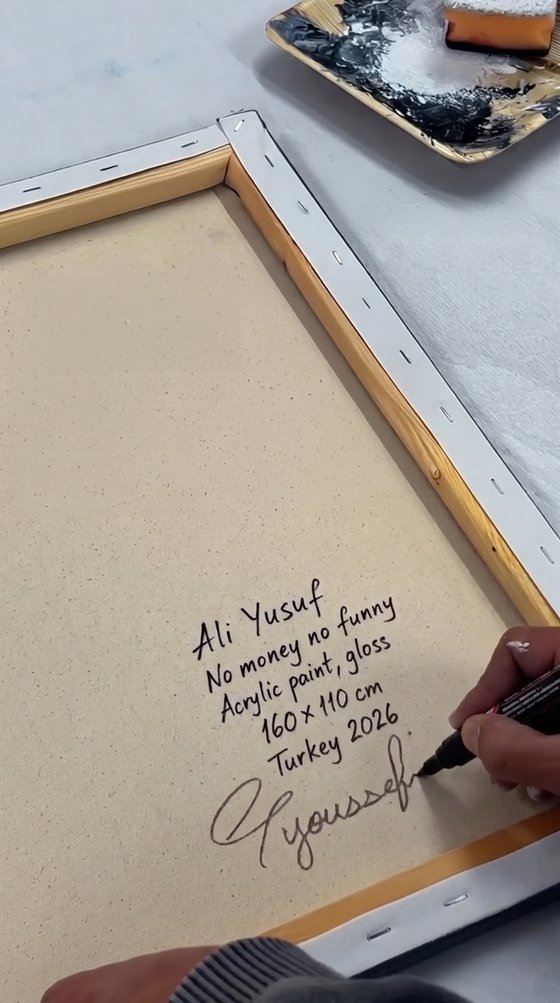 Ali Yusuf
No money no funny
Acrylic paint, gloss
160 x 110 cm
Turkey 2026
Gyoussefi